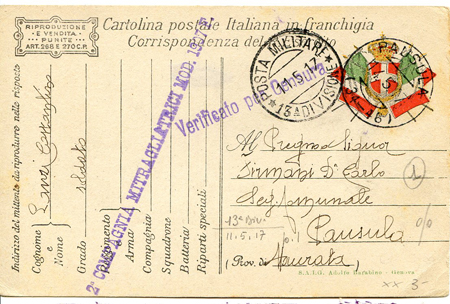 RIPRODUZIONE
E VENDITA
PUNITE
ART. 268 E 270 C.P.
Cartolina postale Italiana in franchigia
Corrispondenza del
POSTA MILITARE
11.5.17
* 13ª DIVISIONE *
PAUSULA
Verificato per Censura
2ª COMPAGNIA MITRAGLIATRICI MOD. 1907 F.
Indirizzo del mittente da riprodurre nella risposta
Cognome
e
Nome
Grado
soldato
Reggimento
Arma
Compagnia
Squadrone
Batteria
Riparti speciali
Al Pregno Signor
Carlo
Seg. comunale
13ª Div.
11.5.17
Pausula
(Prov. di Macerata
S.A.I.G. Adolfo Barabino - Genova
xx 3-